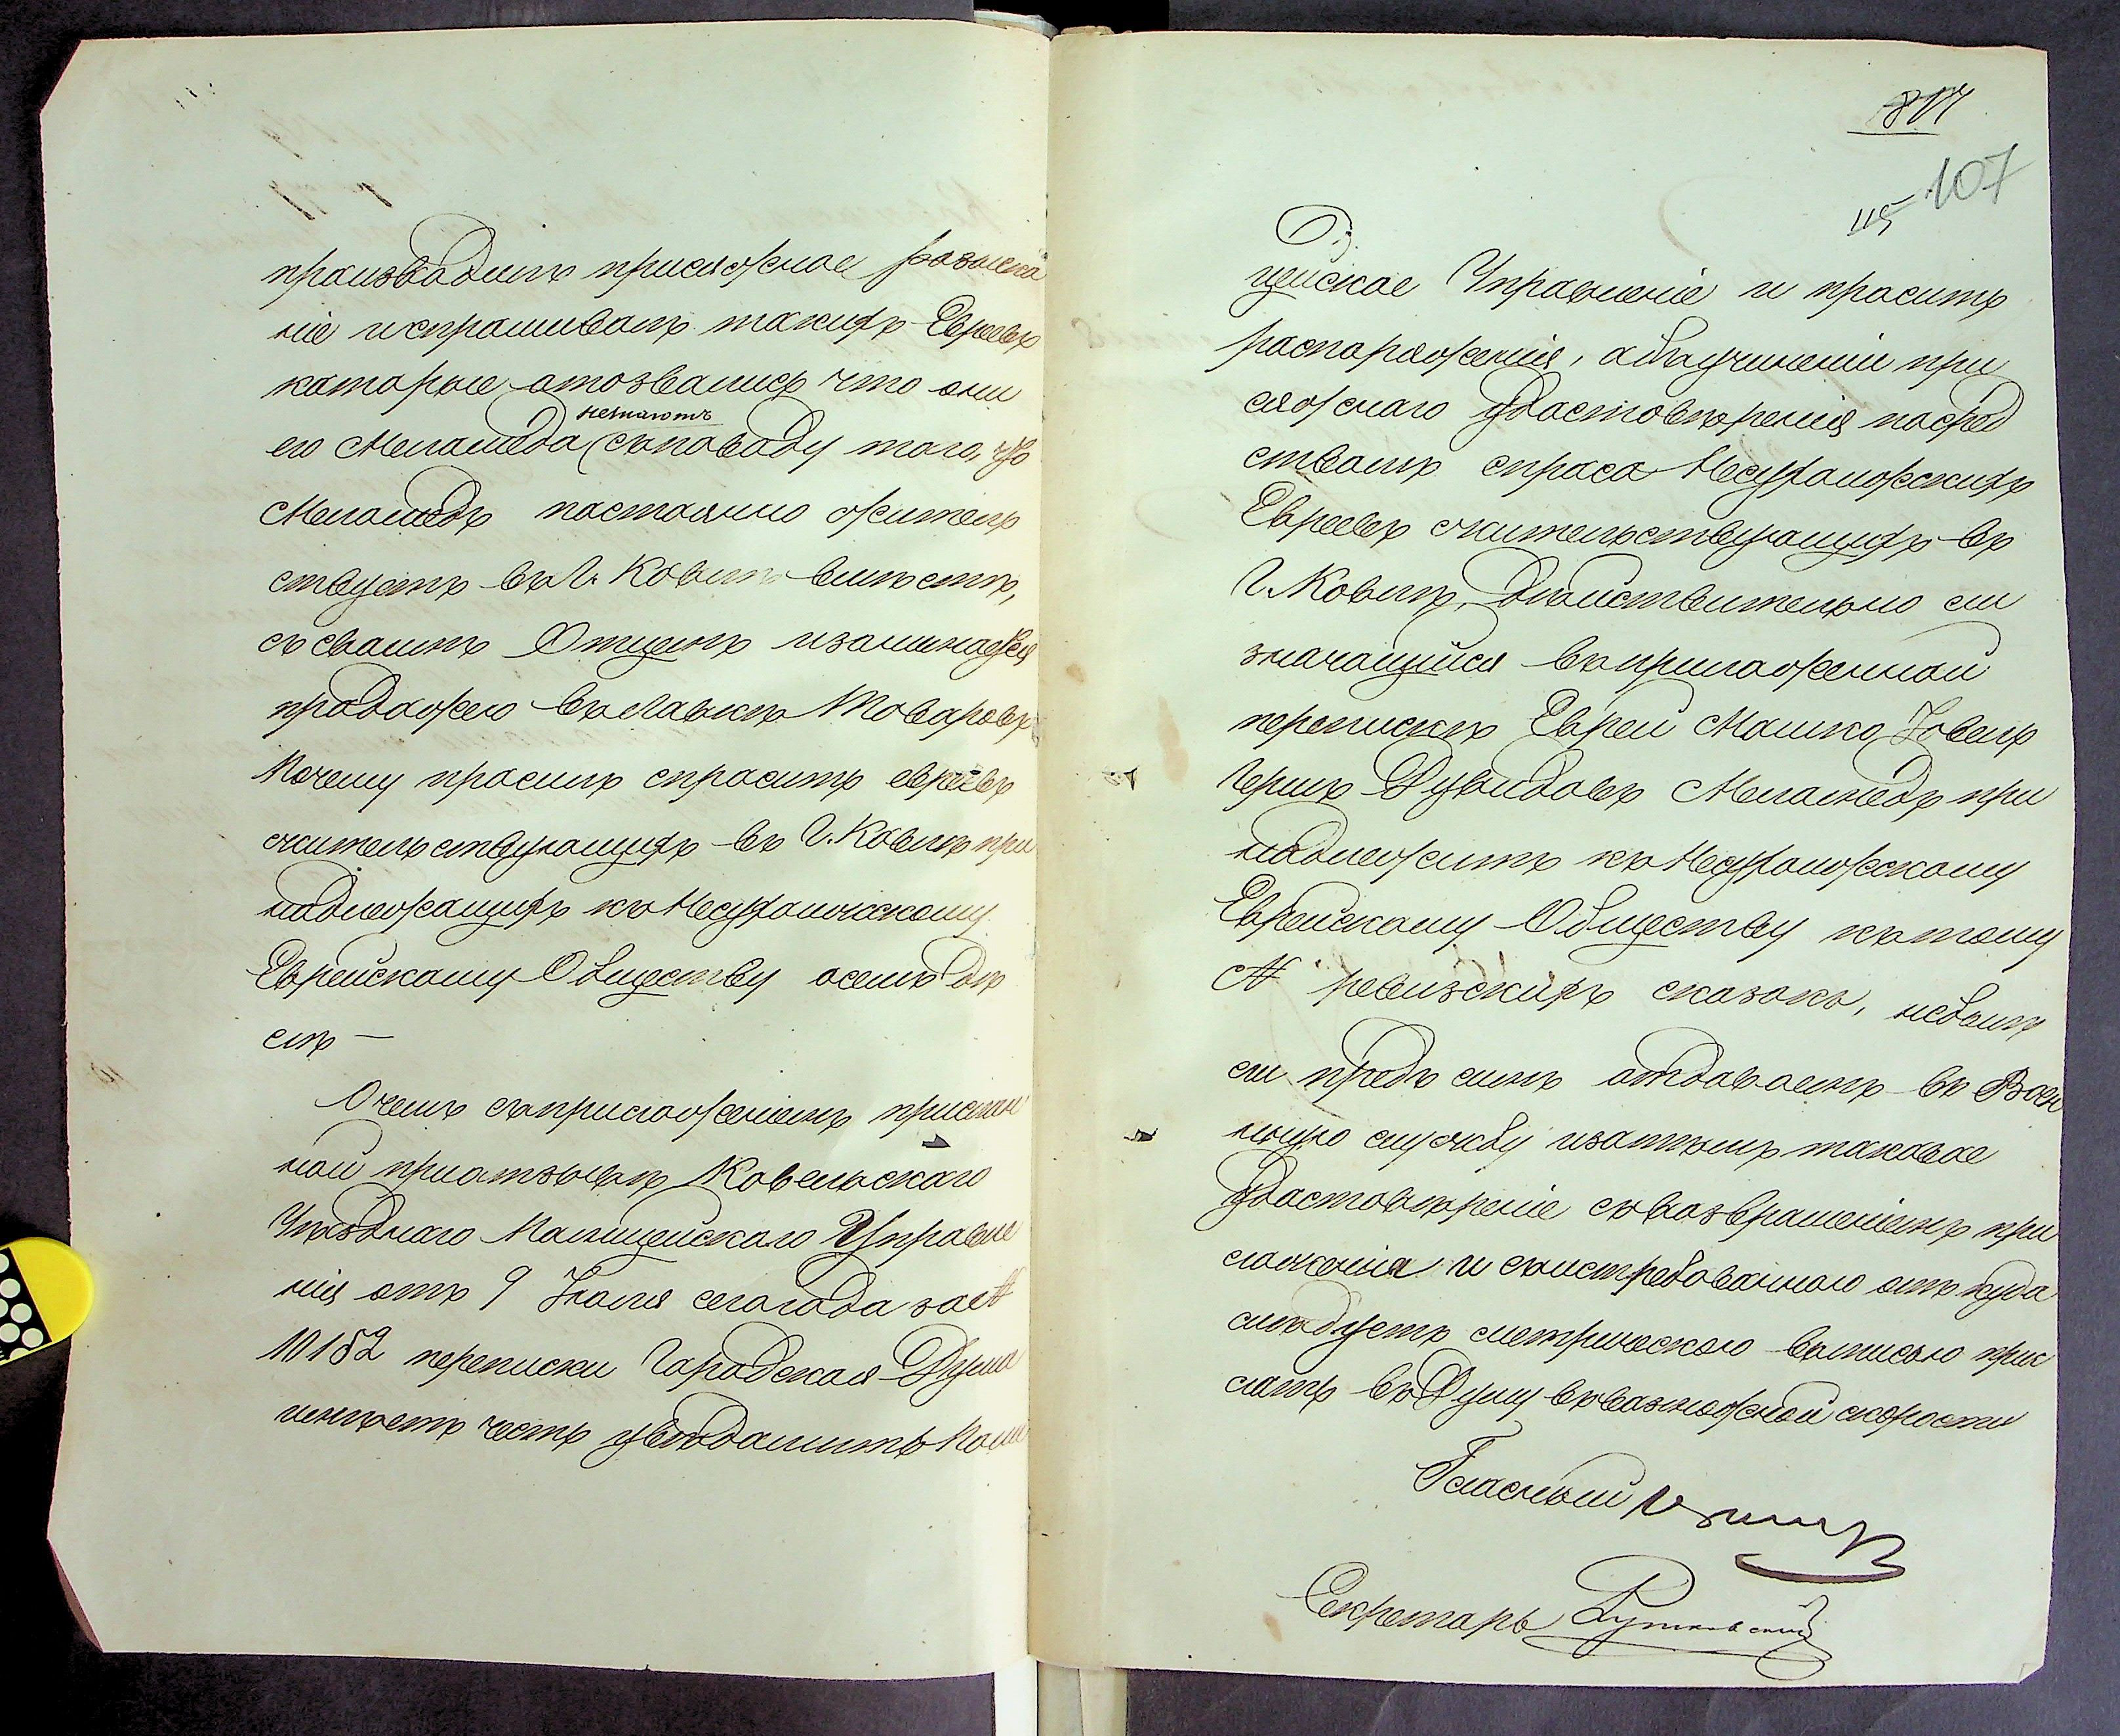 производилъ присяжное розыска
ніе и спрашивалъ такихъ Евреевъ
которые отозвались что они
незнаютъ
его Меламеда съ поводу того, что
Меламедъ постоянно житель
ствуетъ въ Г. Ковелѣ вмѣстѣ,
съ своимъ Отцемъ и занимается
продажею въ лавкѣ Товаровъ
Почему просилъ спросить евреевъ
жительствующихъ въ Г. Ковелѣ при
надлежащихъ къ Несухоижскому
Еврейскому Обществу осемъ дѣ
лѣ —
О чемъ съ приложеніемъ прислан
ной при отзывѣ Ковельскаго
Уѣзднаго Полицейскаго Управле
нія отъ 9 Іюля сего года за №
10152 переписки Городская Дума
имѣетъ честь увѣдомить Поли
817
107
115
цейское Управленіе и проситъ
распоряженія, объ учиненіи при
сяжнаго удостовѣренія посред
ствомъ спроса Несухоижскихъ
Евреевъ жительствующихъ въ
Г. Ковелѣ, дѣйствительно ли
значащійся въ приложенной
перепискѣ Еврей Мошко Іовель
Гершъ Дувидовъ Меламедъ при
надлежитъ къ Несухоижскому
Еврейскому Обществу к тому
№ ревизскихъ сказокъ, небылъ
ли предъ симъ отдаваемъ въ Воен
ную службу и затѣмъ таковое
удостовѣреніе съ возвращеніемъ при
ложенія и съ истребованною отъ куда
слѣдуетъ метрическою выписью прис
лать въ Думу въ возможной скорости
Гласный
Секретарь Рутковский